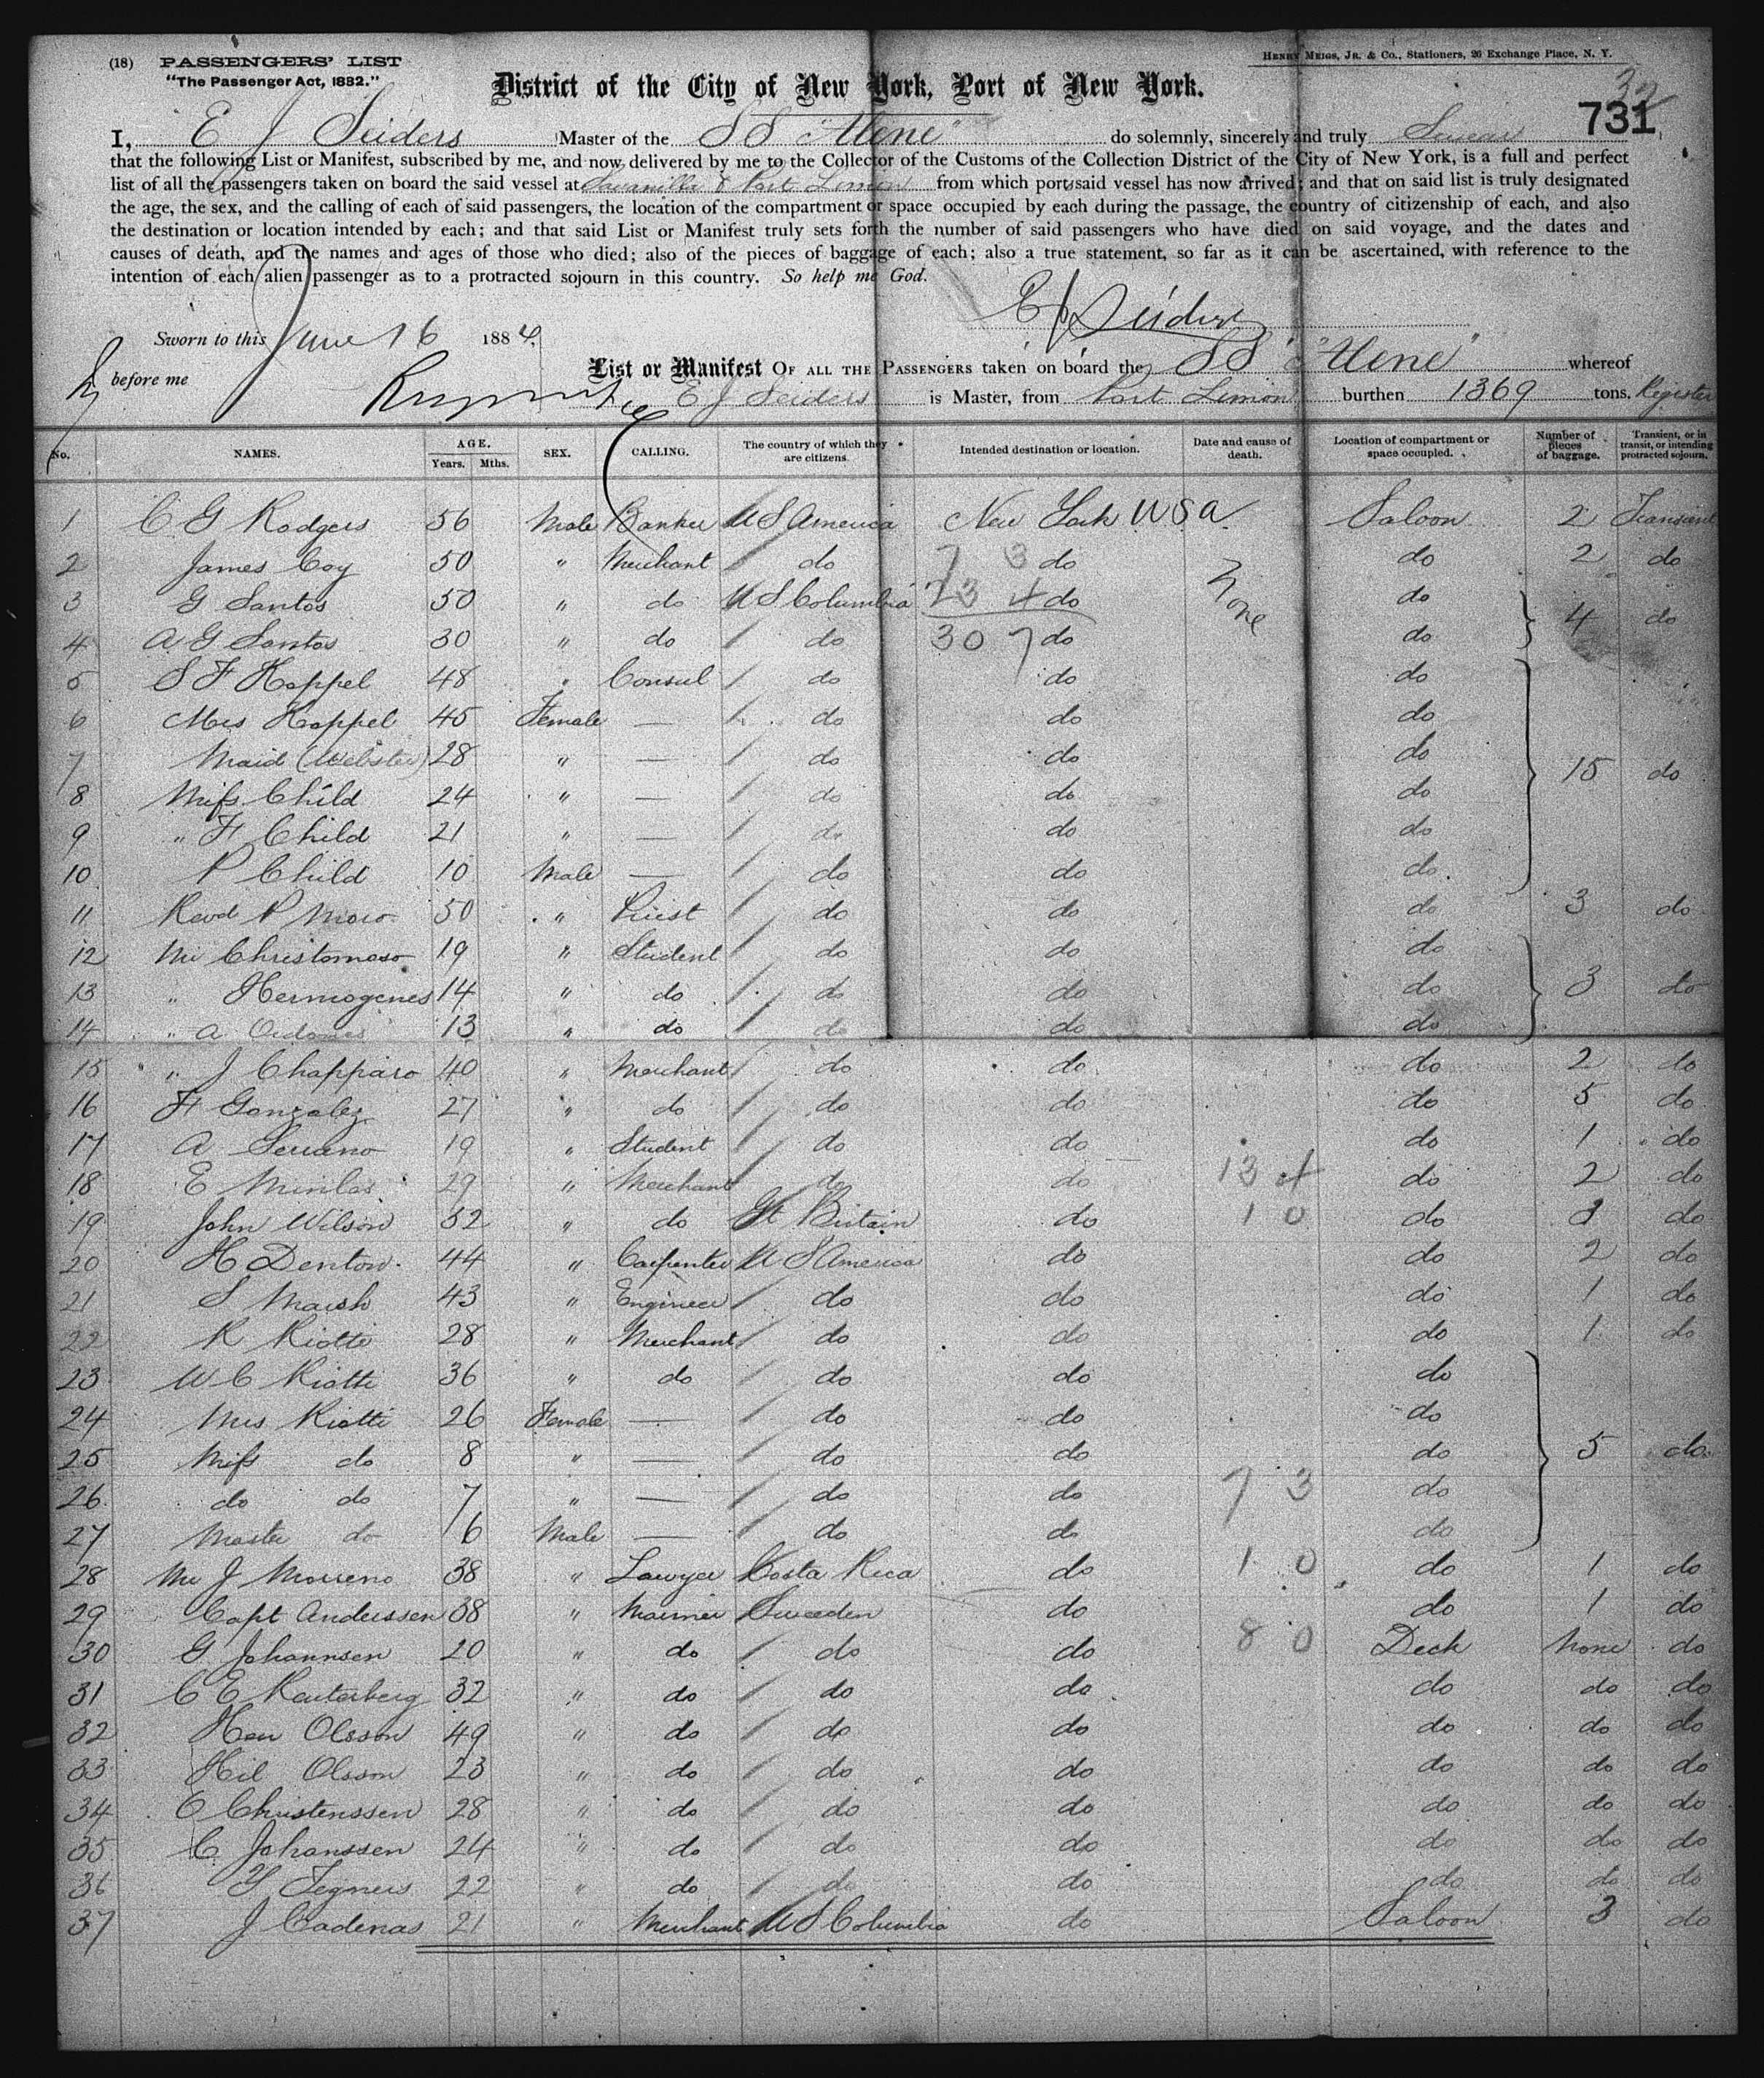 (18) PASSENGERS' LIST
"The Passenger Act, 1882."
HENRY MEIGS, JR. & CO., Stationers, 26 Exchange Place, N. Y.
District of the City of New York, Port of New York.
731
I, E J Seiders Master of the SS "Alene" do solemnly, sincerely and truly Swear
that the following List or Manifest, subscribed by me, and now delivered by me to the Collector of the Customs of the Collection District of the City of New York, is a full and perfect
list of all the passengers taken on board the said vessel at Savanilla & Port Limon from which port, said vessel has now arrived; and that on said list is truly designated
the age, the sex, and the calling of each of said passengers, the location of the compartment or space occupied by each during the passage, the country of citizenship of each, and also
the destination or location intended by each; and that said List or Manifest truly sets forth the number of said passengers who have died on said voyage, and the dates and
causes of death, and the names and ages of those who died; also of the pieces of baggage of each; also a true statement, so far as it can be ascertained, with reference to the
intention of each alien passenger as to a protracted sojourn in this country. So help me God.
E J Seiders
Sworn to this June 16 1884.
before me
List or Manifest OF ALL THE PASSENGERS taken on board the SS "Alene" whereof
E J Seiders is Master, from Port Limon burthen 1369 tons. Register
No. NAMES. AGE. Years. Mths. SEX. CALLING. The country of which they are citizens. Intended destination or location. Date and cause of death. Location of compartment or space occupied. Number of pieces of baggage. Transient, or in transit, or intending protracted sojourn.
1 C G Rodgers 56 Male Banker U S America New York USA Saloon 2 Transient
2 James Coy 50 " Merchant do 7 3 do None do 2 do
3 G Santos 50 " do U S Columbia 23 4 do do
4 A G Santos 30 " do do 30 7 do do 4 do
5 S F Koppel 48 " Consul do do do
6 Mrs Koppel 45 Female — do do do
7 Maid (Webster) 28 " — do do do 15 do
8 Miss Child 24 " — do do do
9 " F Child 21 " — do do do
10 P Child 10 Male — do do do
11 Revd P Moro 50 " Priest do do do 3 do
12 Mr Christomaso 19 " Student do do do
13 " Hermogenes 14 " do do do do 3 do
14 " A 13 " do do do do
15 " J Chapparo 40 " Merchant do do do 2 do
16 F Gonzalez 27 " do do do do 5 do
17 A Serrano 19 " Student do do do 1 do
18 E Minlos 29 " Merchant do do 13 4 do 2 do
19 John Wilson 32 " do Gt Britain do 1 0 do do
20 H Denton 44 " Carpenter U S America do do 2 do
21 S Marsh 43 " Engineer do do do 1 do
22 R Riotte 28 " Merchant do do do 1 do
23 W C Riotti 36 " do do do do
24 Mrs Riotti 26 Female — do do do
25 Miss do 8 " — do do do 5 do
26 do do 7 " — do do 7 3 do
27 Master do 6 Male — do do do
28 Mr J Morreno 38 " Lawyer Costa Rica do 1 0 do 1 do
29 Capt Anderssen 38 " Mariner Sweeden do do 1 do
30 G Johannsen 20 " do do do 8 0 Deck None do
31 C E Reuterberg 32 " do do do do do do
32 Hen Olsson 49 " do do do do do do
33 Hil Olsson 23 " do do do do do do
34 C Christenssen 28 " do do do do do do
35 C Johanssen 24 " do do do do do do
36 Y Tegners 22 " do do do do do do
37 J Cadenas 21 " Merchant U S Columbia do Saloon 3 do